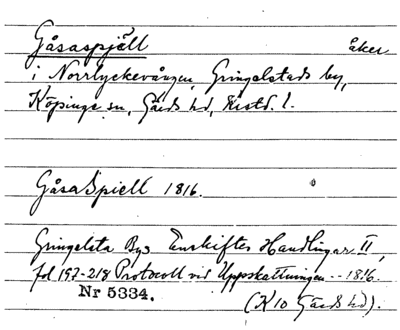 Gåsaspjäll åker
i Norrlyckevången, Gringelstads by,
Köpinge sn, Gärds hd, Kristd. l.
GåsaSpiell 1816.
Gringelsta Bys Enskiftes Handlingar II,
fol 197-218 Protocoll vid Uppskattningen -- 1816.
Nr 5334.
(K 10 Gärds hd).